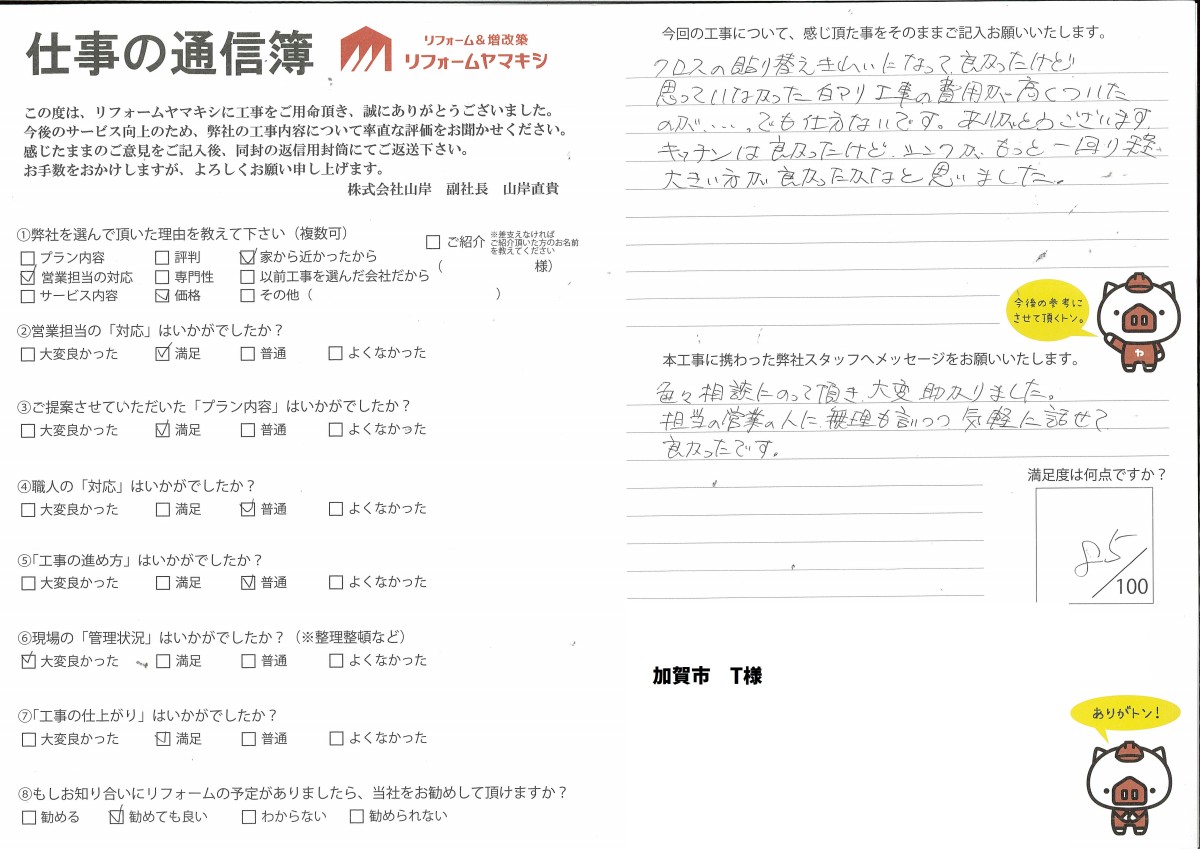 仕事の通信簿
リフォーム&増改築
リフォームヤマキシ
この度は、リフォームヤマキシに工事をご用命頂き、誠にありがとうございました。
今後のサービス向上のため、弊社の工事内容について率直な評価をお聞かせください。
感じたままのご意見をご記入後、同封の返信用封筒にてご返送下さい。
お手数をおかけしますが、よろしくお願い申し上げます。
株式会社山岸 副社長 山岸直貴
①弊社を選んで頂いた理由を教えて下さい（複数可）
□ ご紹介 ※差支えなければ
ご紹介頂いた方のお名前
を教えてください
（ 様）
□ プラン内容 □ 評判 ☑ 家から近かったから
☑ 営業担当の対応 □ 専門性 □ 以前工事を選んだ会社だから
□ サービス内容 ☑ 価格 □ その他（ ）
②営業担当の「対応」はいかがでしたか？
□ 大変良かった ☑ 満足 □ 普通 □ よくなかった
③ご提案させていただいた「プラン内容」はいかがでしたか？
□ 大変良かった ☑ 満足 □ 普通 □ よくなかった
④職人の「対応」はいかがでしたか？
□ 大変良かった □ 満足 ☑ 普通 □ よくなかった
⑤「工事の進め方」はいかがでしたか？
□ 大変良かった □ 満足 ☑ 普通 □ よくなかった
⑥現場の「管理状況」はいかがでしたか？（※整理整頓など）
☑ 大変良かった □ 満足 □ 普通 □ よくなかった
⑦「工事の仕上がり」はいかがでしたか？
□ 大変良かった ☑ 満足 □ 普通 □ よくなかった
⑧もしお知り合いにリフォームの予定がありましたら、当社をお勧めして頂けますか？
□ 勧める ☑ 勧めても良い □ わからない □ 勧められない
今回の工事について、感じ頂た事をそのままご記入お願いいたします。
クロスの貼り替えきれいになって良かったけど
思っていなかった白アリ工事の費用が高くついた
のが.....、でも仕方ないです。ありがとうございます。
キッチンは良かったけど、シンクが、もっと一回り
大きい方が良かったかなと思いました。
今後の参考に
させて頂くトン。
や
本工事に携わった弊社スタッフへメッセージをお願いいたします。
色々相談にのって頂き、大変助かりました。
担当の営業の人に、無理も言いつつ気軽に話せて
良かったです。
満足度は何点ですか？
85/100
加賀市 T様
ありがトン！